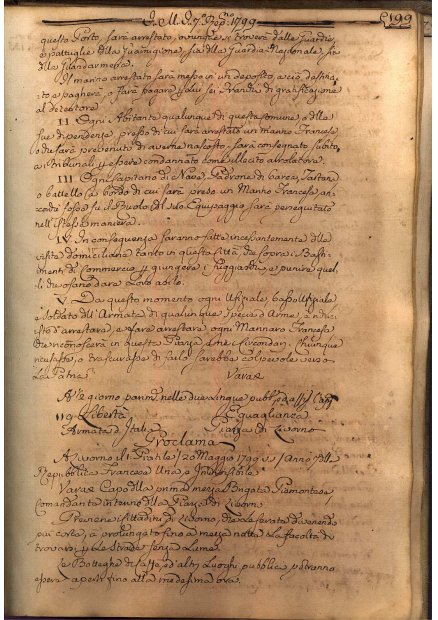 questo Porto, sarà arrestato, ovunque si troverà dalle Guardie,
e pattuglie della Guarnigione, sia della Guardia Nazionale sia
della Giandarmeria.
Il marinaro arrestato sarà messo in un deposito a ciò destina-
to e pagherà, o farà pagare per lui sei Franchi di gratificazione
al detentore
II Ogni Abitante qualunque di questa comune, o della
sua dipendenza presso di cui sarà arrestato un marinaro Francese,
che sarà prevenuto di averne nascosto, sarà consegnato subito
a i Tribunali per essere condannato come illecito arrolatore.
III Ogni Capitano di Nave, Padrone di barca, Tartana
o battello a bordo di cui sarà preso un Marinaro Francese an-
corchè fosse su il Ruolo del suo Equipaggio sarà perseguitato
nell'istessa maniera.
IV In conseguenza saranno fatte incessantemente delle
visite domiciliarie tanto in questa città, che sopra i Basti-
menti di commercio per giungere i fuggiaschi e punire quel-
li che osano dare Loro asilo.
V. Da questo momento ogni Ufiziale, basso Ufiziale,
e soldato dell'Armata di qualunque specie d'Arme, è
d'arrestare, e fare arrestare ogni Marinaro Francese
che riconoscerà in questa Piazza, e nei circondari. Chiunque
ricusasse, o trascurasse di farlo sarebbe colpevole verso
La Patria
Varas
Libertà Eguaglianza
Armata d'Italia Piazza di Livorno
Proclama
Livorno il 1 Pratile / 20 Maggio 1799 / Anno 7 della
Repubblica Francese Una, e Indivisibile
Varas Capo della prima mezza Brigata Piemontese,
Comandante interino della Piazza di Livorno
Previene i cittadini di Livorno, che La serata divenendo
più corta, à prolungato fino a mezza notte La facoltà di
trovarsi per Le strade senza Lume.
Le Botteghe di Caffè, ed altri Luoghi pubblici potranno
essere aperti fino alla medesima ora.